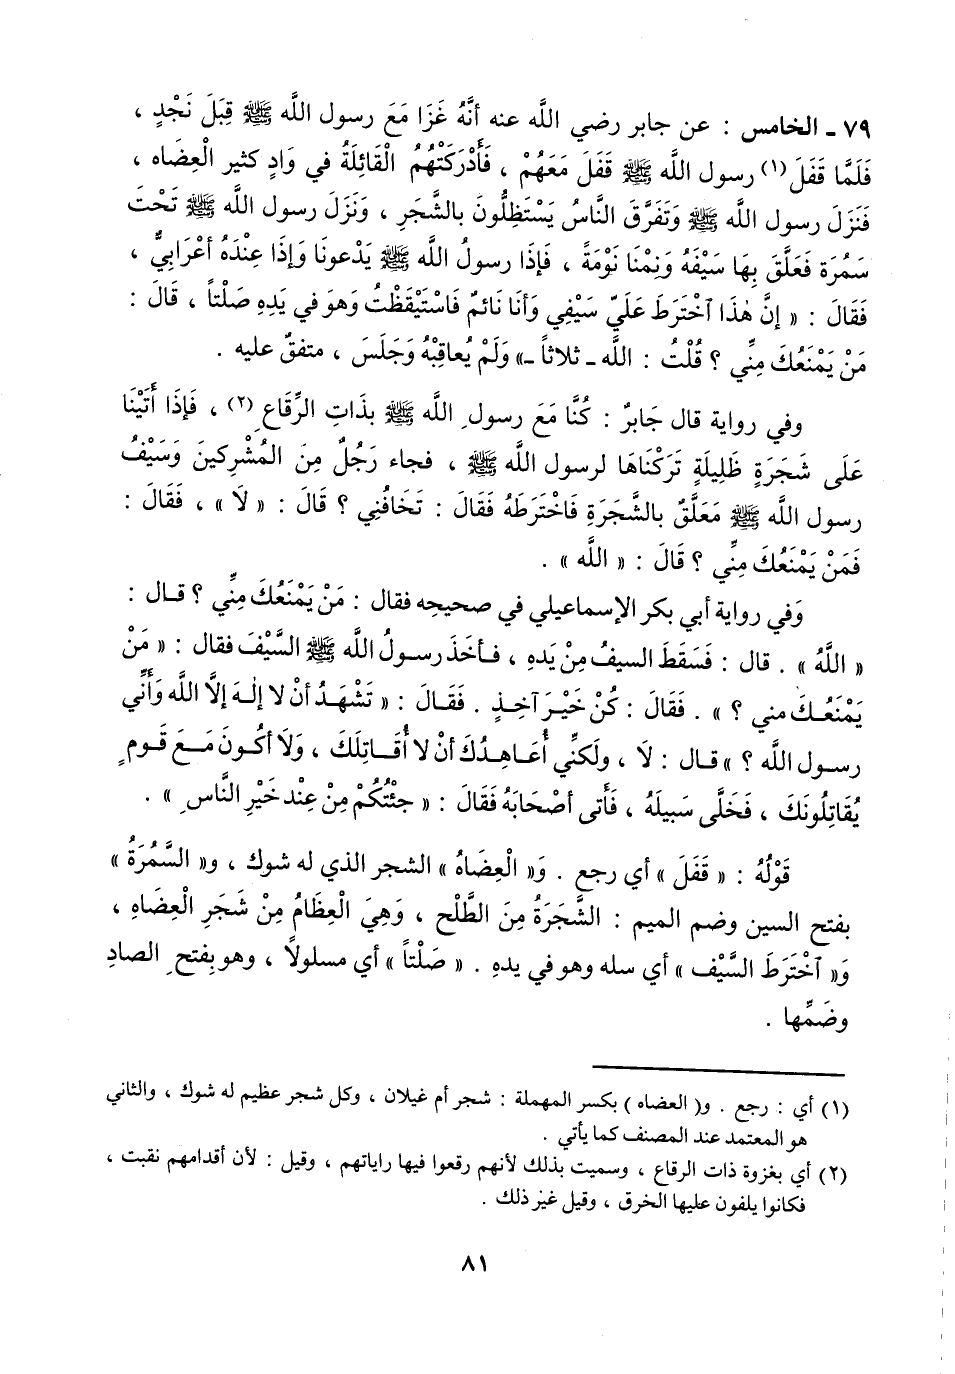 ٧٩ ـ الخامس : عن جابر رضي اللَّه عنه أنَّهُ غَزَا مَعَ رسول اللَّه ﷺ قِبَلَ نَجْدٍ ،
فَلَمَّا قَفَلَ (١) رسول اللَّه ﷺ قَفَلَ مَعَهُمْ ، فَأَدْرَكَتْهُمُ الْقَائِلَةُ في وَادٍ كثير الْعِضَاه ،
فَنَزَلَ رسول اللَّه ﷺ وَتَفَرَّقَ النَّاسُ يَسْتَظِلُّونَ بالشَّجَرِ ، وَنَزَلَ رسول اللَّه ﷺ تَحْتَ
سَمُرَة فَعَلَّقَ بِهَا سَيْفَهُ وَنِمْنَا نَوْمَةً ، فَإذَا رسولُ اللَّه ﷺ يَدْعونَا وَإذَا عِنْدَهُ أعْرَابِيٌّ ،
فَقَالَ : « إنَّ هٰذَا ٱخْتَرَطَ عَلَيَّ سَيْفِي وَأنَا نَائمٌ فَاسْتَيْقَظْتُ وَهوَ في يَدِهِ صَلْتاً ، قَالَ :
مَنْ يَمْنَعُكَ مِنِّي ؟ قُلْتُ : اللَّه ـ ثلاثاً ـ» وَلَمْ يُعاقِبْهُ وَجَلَسَ ، متفقٌ عليه .
وفي رواية قال جَابرٌ : كُنَّا مَعَ رسولِ اللَّه ﷺ بذَاتِ الرِّقَاعِ (٢) ، فَإذَا أَتَيْنَا
عَلَى شَجَرَةٍ ظَلِيلَةٍ تَرَكْنَاهَا لرسول اللَّه ﷺ ، فجاء رَجُلٌ مِنَ المُشْرِكينَ وَسَيْفُ
رسول اللَّه ﷺ مَعَلَّقٌ بالشَّجَرَةِ فَاخْتَرطَهُ فَقَالَ : تَخَافُنِي ؟ قَالَ : « لَا » ، فَقَالَ :
فَمَنْ يَمْنَعُكَ مِنِّي ؟ قَالَ : « اللَّه » .
وَفي رواية أبي بكر الإسماعيلي في صحيحِه فقال : مَنْ يَمْنَعُكَ مِنِّي ؟ قـال :
« اللَّهُ » . قال : فَسَقَطَ السيفُ مِنْ يَدِهِ ، فـأخَذَ رسـولُ اللَّه ﷺ السَّيْفَ فقال : « مَنْ
يَمْنَعُـكَ مني ؟ » . فَقَالَ : كُنْ خَيْـرَ آخِـذٍ . فَقَـالَ : « تَشْهَـدُ أنْ لا إلٰـهَ إلَّا اللَّه وَأَنِّي
رسـول اللَّه ؟ » قـال : لَا ، ولَكنِّي أُعَـاهِـدُكَ أنْ لا أُقَـاتِلَكَ ، وَلَا أكُـونَ مَـعَ قَـومٍ
يُقَاتِلُونَكَ ، فَخَلَّى سَبيلَهُ ، فَأتَى أصْحَابَهُ فَقَالَ : « جئْتُكُمْ مِنْ عِنْد خَيْرِ النَّاسِ » .
قَوْلُهُ : « قَفَلَ » أي رجع . وَ« الْعِضَاهُ » الشجر الذي له شوك ، و« السَّمُرَةُ »
بفتح السين وضم الميم : الشَّجَرَةُ مِنَ الطَّلْح ، وَهِيَ الْعِظَامُ مِنْ شَجَرِ الْعِضَاهِ ،
وَ« ٱخْتَرَطَ السَّيْف » أي سله وهو في يدهِ . « صَلْتاً » أي مسلولاً ، وهو بِفتحِ الصادِ
وضَمِّها .
(١) أي : رجع . و( العضاه ) بكسر المهملة : شجر أم غيلان ، وكل شجر عظيم له شوك ، والثاني
هو المعتمد عند المصنف كما يأتي .
(٢) أي بغزوة ذات الرقاع ، وسميت بذلك لأنهم رقعوا فيها راياتهم ، وقيل : لأن أقدامهم نقبت ،
فكانوا يلفون عليها الخرق ، وقيل غير ذلك .
٨١